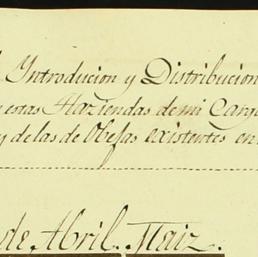 Introducion y Distribucion
estas Haziendas de mi Cargo
y de las de Obejas existentes en
de Abril. Maiz.